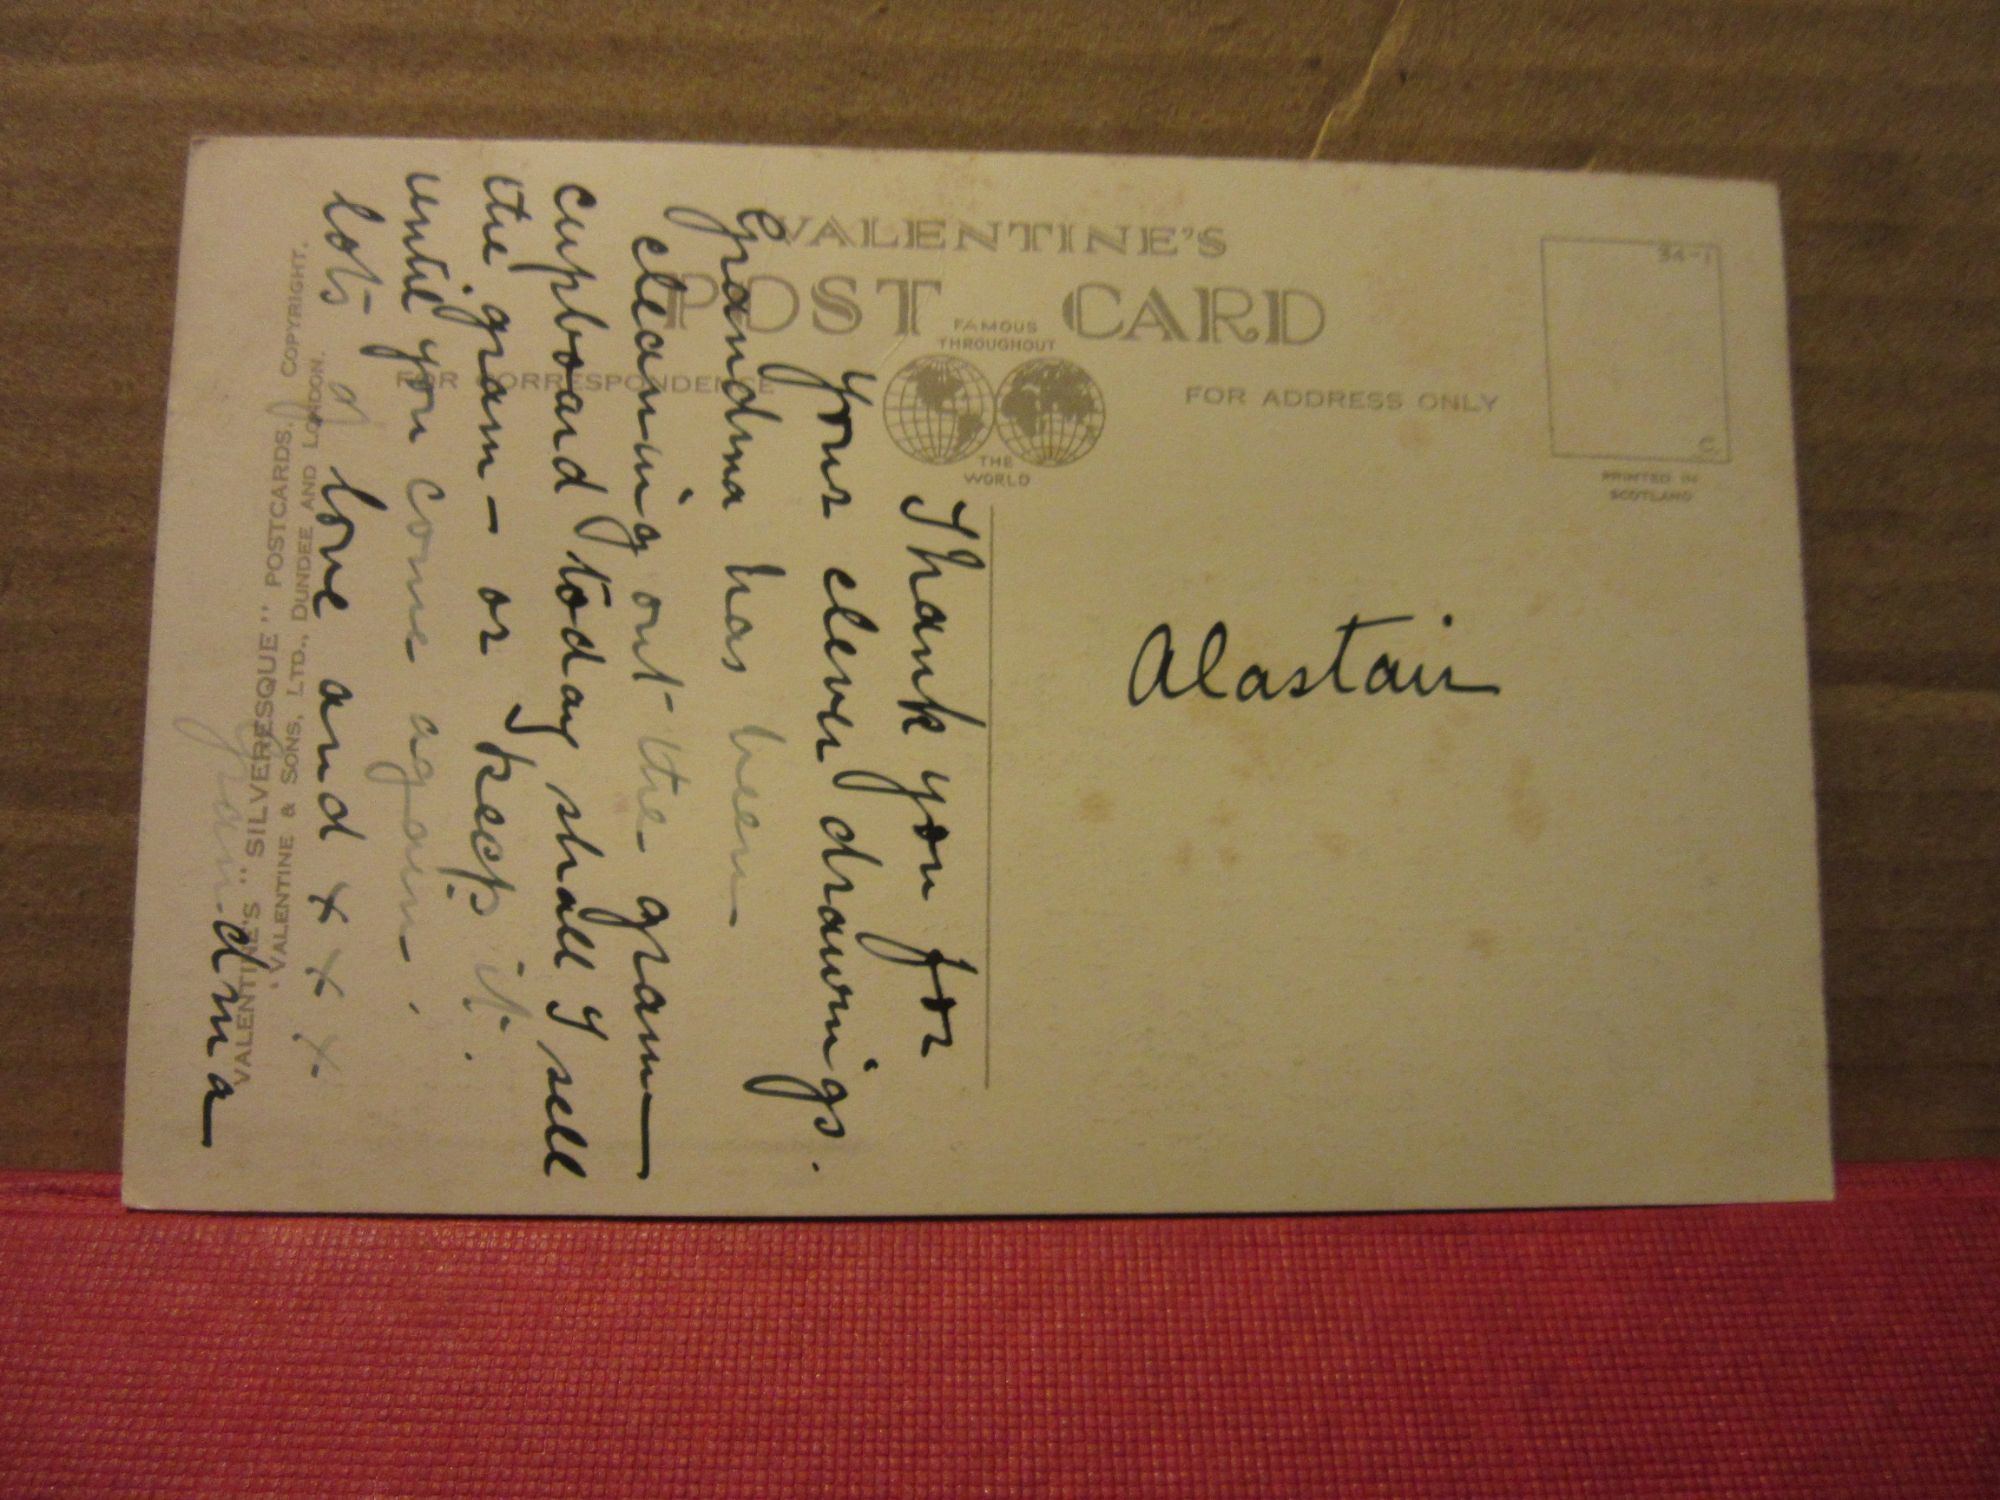 VALENTINE'S
POST CARD
FAMOUS
THROUGHOUT
THE
WORLD
FOR CORRESPONDENCE
FOR ADDRESS ONLY
34-1
C
PRINTED IN
SCOTLAND
Alastair
Thank you for
your clever drawings.
Grandma has been
cleaning out the gram
cupboard today shall I sell
the gram - or keep it.
until you come again.
lots of love and x x x
grandma
VALENTINE'S "SILVERESQUE" POSTCARDS. COPYRIGHT.
VALENTINE & SONS, LTD., DUNDEE AND LONDON.